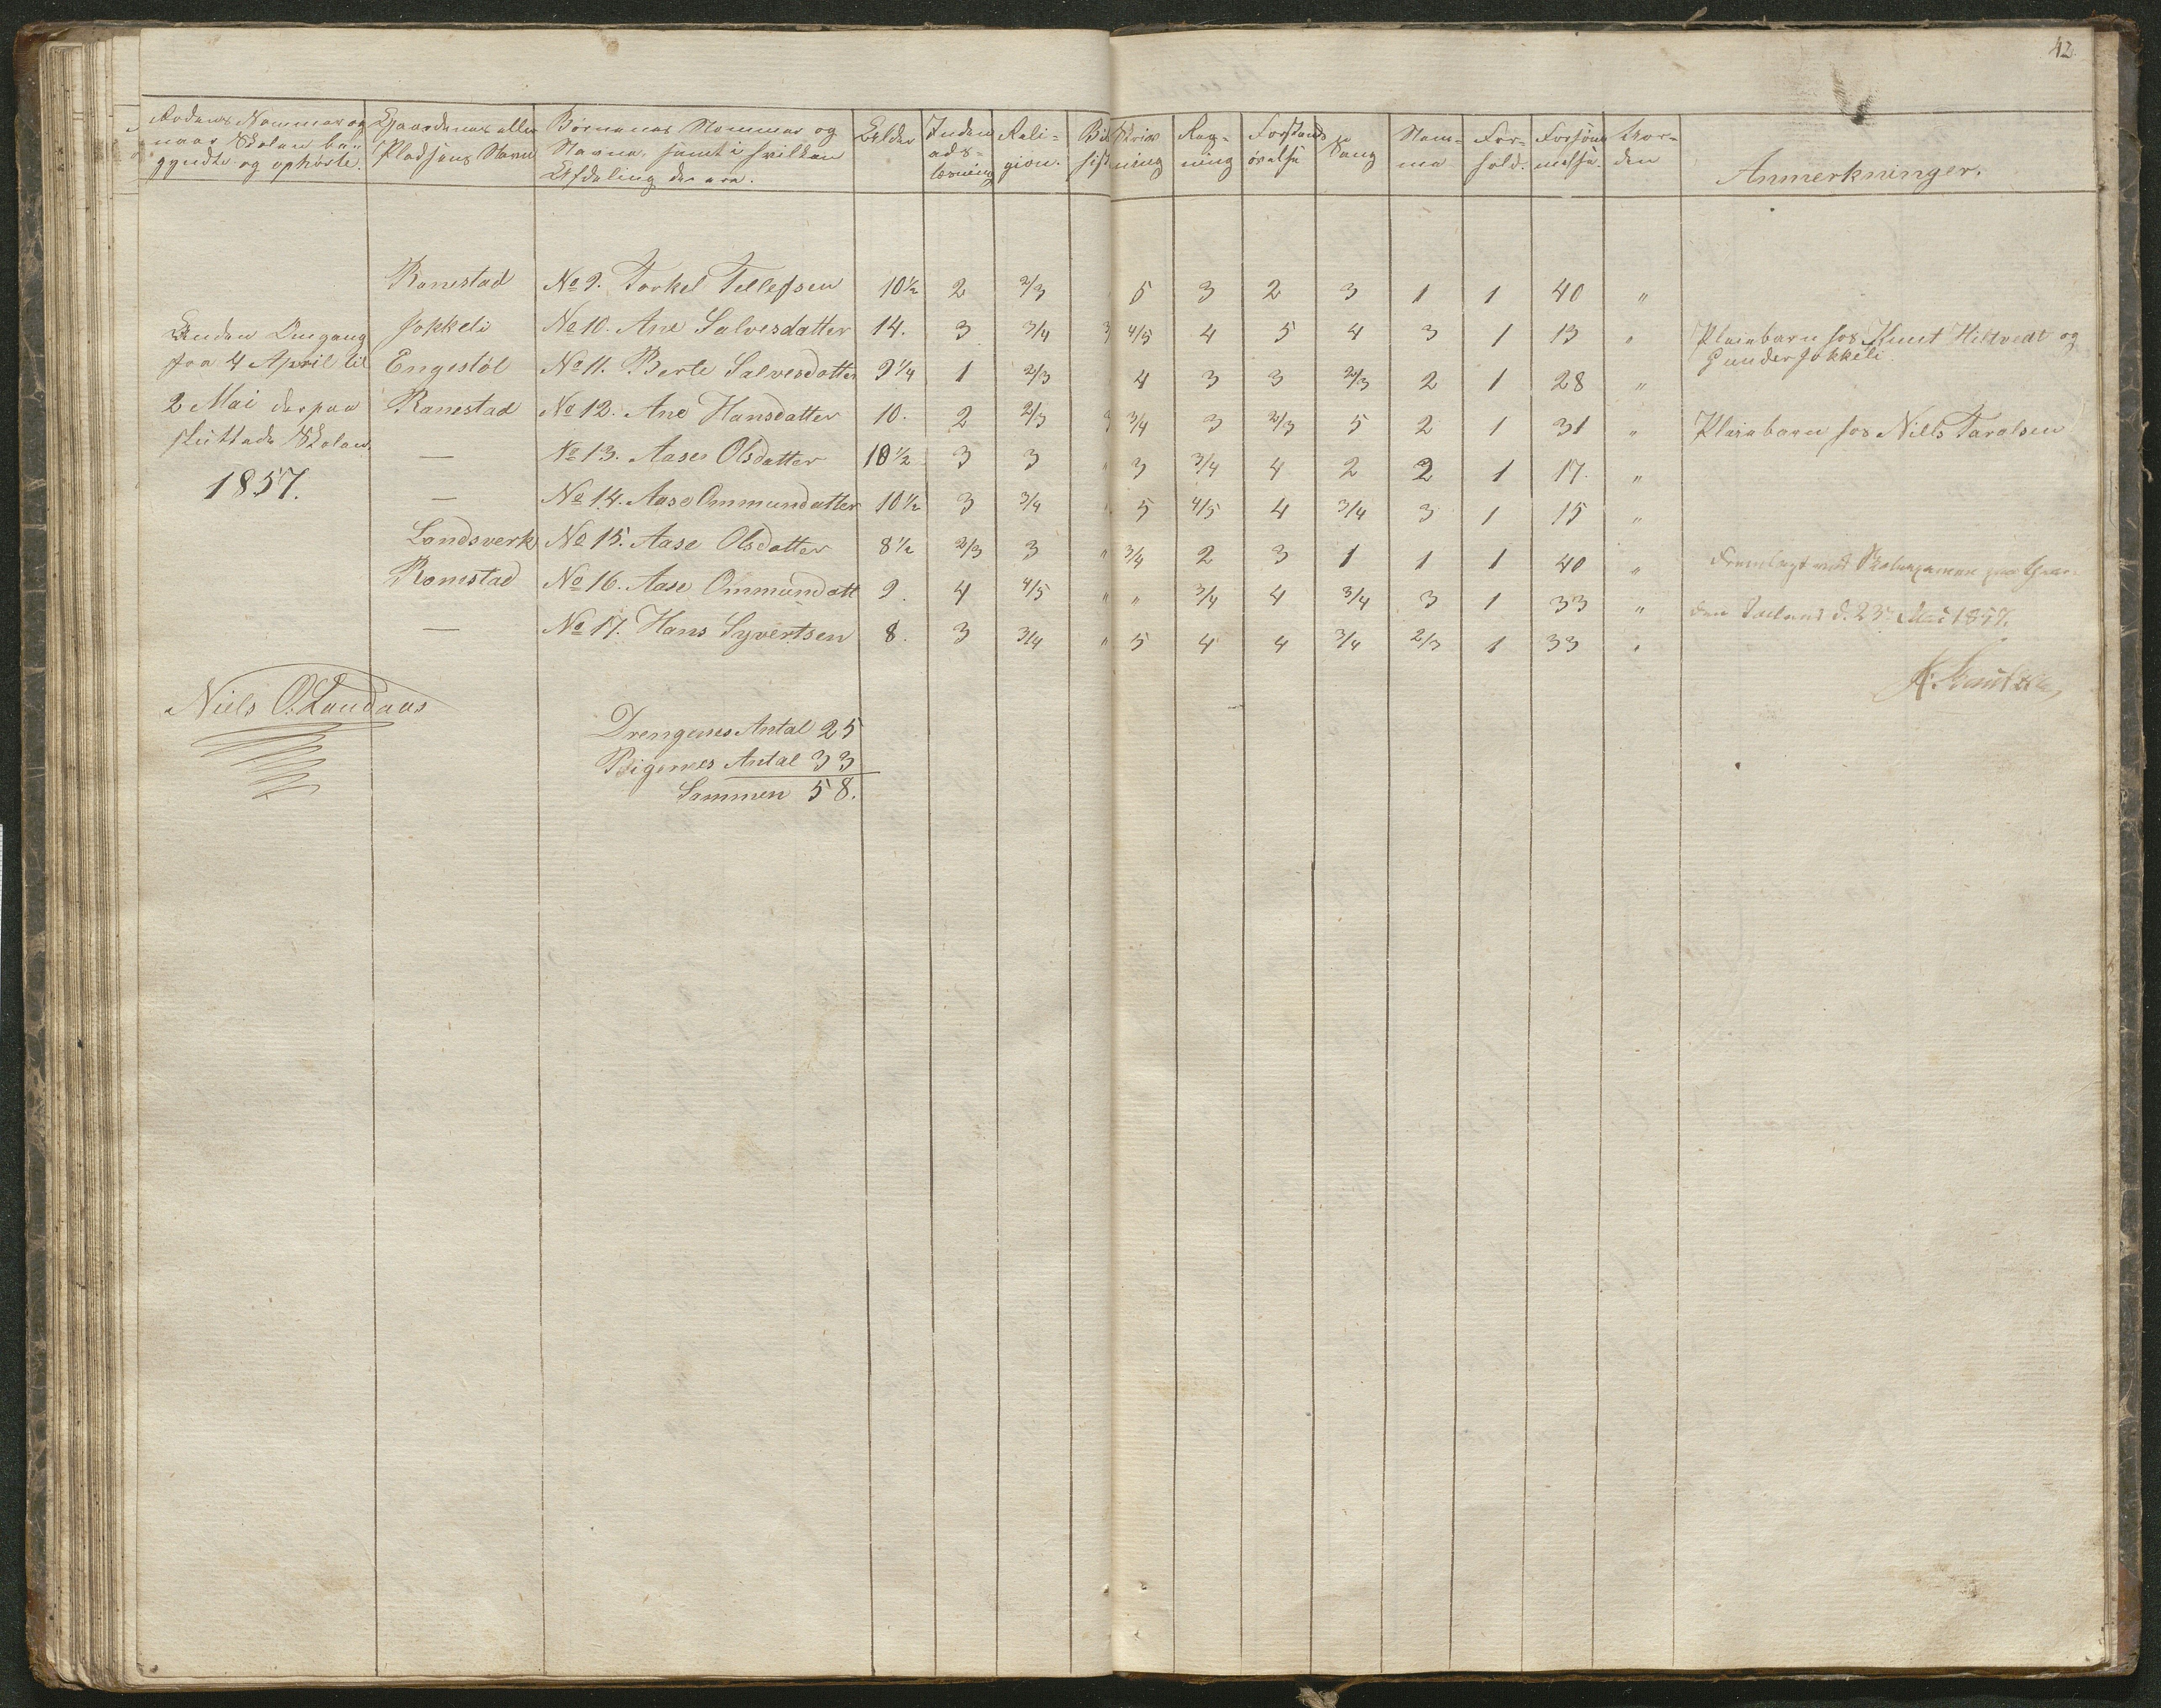 42.
Rodens Nummer og naar Skolen begyndte og ophörte. | Gaardenes eller Pladsens Navn | Börnenes Nummer og Navne, samt i hvilken Afdeling de ere. | Alder | Indenadslæsning | Religion. | Bi hist | Skrivning | Regning | Forstands övelse | Sang | Nemme | Forhold. | Forsömmelse. | Anmerkninger.
Ronestad No 9. Torkel Tellefsen 10½ 2 2/3 5 3 2 3 1 1 40 "
Anden Omgang Jokkeli No 10. Ane Salvesdatter 14. 3 3/4 3 4/5 4 5 4 3 1 13 " Pleiebarn hos Knut Hiltvedt og
fra 4 April til Engestöl No 11. Berte Salvesdatter 9¼ 1 2/3 4 3 3 2/3 2 1 28 " Gunder Jokkeli.
2 Mai derpaa Ranestad No 12. Ane Hansdatter 10. 2 2/3 3 3/4 3 2/3 5 2 1 31 " Pleiebarn hos Niels Taralsen
sluttede Skolen. — No 13. Aase Olsdatter 10½ 3 3 " 3 3/4 4 2 2 1 17. "
1857. — No 14. Aase Ommundatter 10½ 3 3/4 " 5 4/5 4 3/4 3 1 15 "
Landsverk No 15. Aase Olsdatter 8½ 2/3 3 " 3/4 2 3 1 1 1 40 " Fremlagt ved Skoleexamen paa
Ronestad No 16. Aase Ommundatt 9. 4 4/5 " " 3/4 4 3/4 3 1 33 " d. 23 Mai 1857.
— No 17. Hans Syvertsen 8. 3 3/4 " 5 4 4 3/4 2/3 1 33 "
Niels O. Landaas
Drengenes Antal 25
Pigernes Antal 33
Sammen 58.